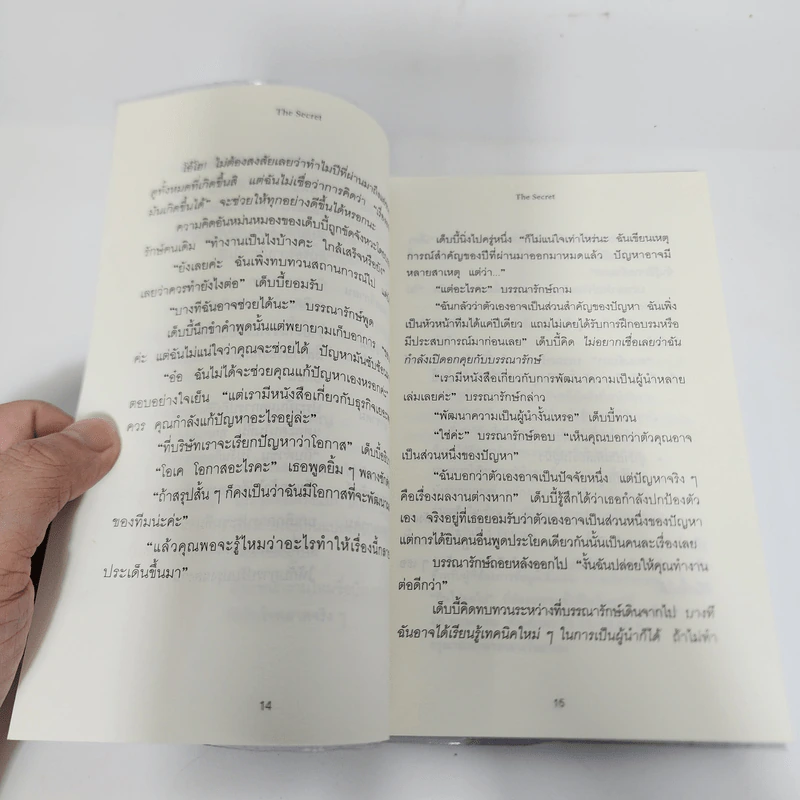 The Secret
โอ้โฮ! ไม่ต้องสงสัยเลยว่าทำไมปีที่ผ่านมาถึง
สูทั้งหมดที่เกิดขึ้นสิ แต่ฉันไม่เชื่อว่าการคิดว่า
มันเกิดขึ้นได้” จะช่วยให้ทุกอย่างดีขึ้นได้หรอกนะ
ความคิดอันหม่นหมองของเด็บบี้ถูกขัดจังหวะ
รักษ์คนเดิม “ทำงานเป็นไงบ้างคะ ใกล้เสร็จหรือยัง”
“ยังเลยค่ะ ฉันเพิ่งทบทวนสถานการณ์ไป
เลยว่าควรทำยังไงต่อ” เด็บบี้ยอมรับ
“บางทีฉันอาจช่วยได้นะ” บรรณารักษ์พูด
เด็บบี้นึกขำคำพูดนั้นแต่พยายามเก็บอาการ
ค่ะ แต่ฉันไม่แน่ใจว่าคุณจะช่วยได้ ปัญหามันซับซ้อน
“อ๋อ ฉันไม่ได้จะช่วยคุณแก้ปัญหาเองหรอกค่ะ”
ตอบอย่างใจเย็น “แต่เรามีหนังสือเกี่ยวกับธุรกิจเยอะ
ควร คุณกำลังแก้ปัญหาอะไรอยู่ล่ะ”
“ที่บริษัทเราจะเรียกปัญหาว่าโอกาส” เด็บบี้
“โอเค โอกาสอะไรคะ” เธอพูดยิ้ม ๆ พลาง
“ถ้าสรุปสั้น ๆ ก็คงเป็นว่าฉันมีโอกาสที่จะพัฒนา
ของทีมน่ะค่ะ”
“แล้วคุณพอจะรู้ไหมว่าอะไรทำให้เรื่องนี้
ประเด็นขึ้นมา”
14
The Secret
เด็บบี้นิ่งไปครู่หนึ่ง “ก็ไม่แน่ใจเท่าไหร่นะ ฉันเขียนเหตุ
การณ์สำคัญของปีที่ผ่านมาออกมาหมดแล้ว ปัญหาอาจมี
หลายสาเหตุ แต่ว่า...”
“แต่อะไรคะ” บรรณารักษ์ถาม
“ฉันกลัวว่าตัวเองอาจเป็นส่วนสำคัญของปัญหา ฉันเพิ่ง
เป็นหัวหน้าทีมได้แค่ปีเดียว แถมไม่เคยได้รับการฝึกอบรมหรือ
มีประสบการณ์มาก่อนเลย” เด็บบี้คิด ไม่อยากเชื่อเลยว่าฉัน
กำลังเปิดอกคุยกับบรรณารักษ์
“เรามีหนังสือเกี่ยวกับการพัฒนาความเป็นผู้นำหลาย
เล่มเลยค่ะ” บรรณารักษ์กล่าว
“พัฒนาความเป็นผู้นำงั้นเหรอ” เด็บบี้ทวน
“ใช่ค่ะ” บรรณารักษ์ตอบ “เห็นคุณบอกว่าตัวคุณอาจ
เป็นส่วนหนึ่งของปัญหา”
“ฉันบอกว่าตัวเองอาจเป็นปัจจัยหนึ่ง แต่ปัญหาจริง ๆ
คือเรื่องผลงานต่างหาก” เด็บบี้รู้สึกได้ว่าเธอกำลังปกป้องตัว
เอง จริงอยู่ที่เธอยอมรับว่าตัวเองอาจเป็นส่วนหนึ่งของปัญหา
แต่การได้ยินคนอื่นพูดประโยคเดียวกันนั้นเป็นคนละเรื่องเลย
บรรณารักษ์ถอยหลังออกไป “งั้นฉันปล่อยให้คุณทำงาน
ต่อดีกว่า”
เด็บบี้คิดทบทวนระหว่างที่บรรณารักษ์เดินจากไป บางที
ฉันอาจได้เรียนรู้เทคนิคใหม่ ๆ ในการเป็นผู้นำก็ได้ ถ้าไม่ทำ
15